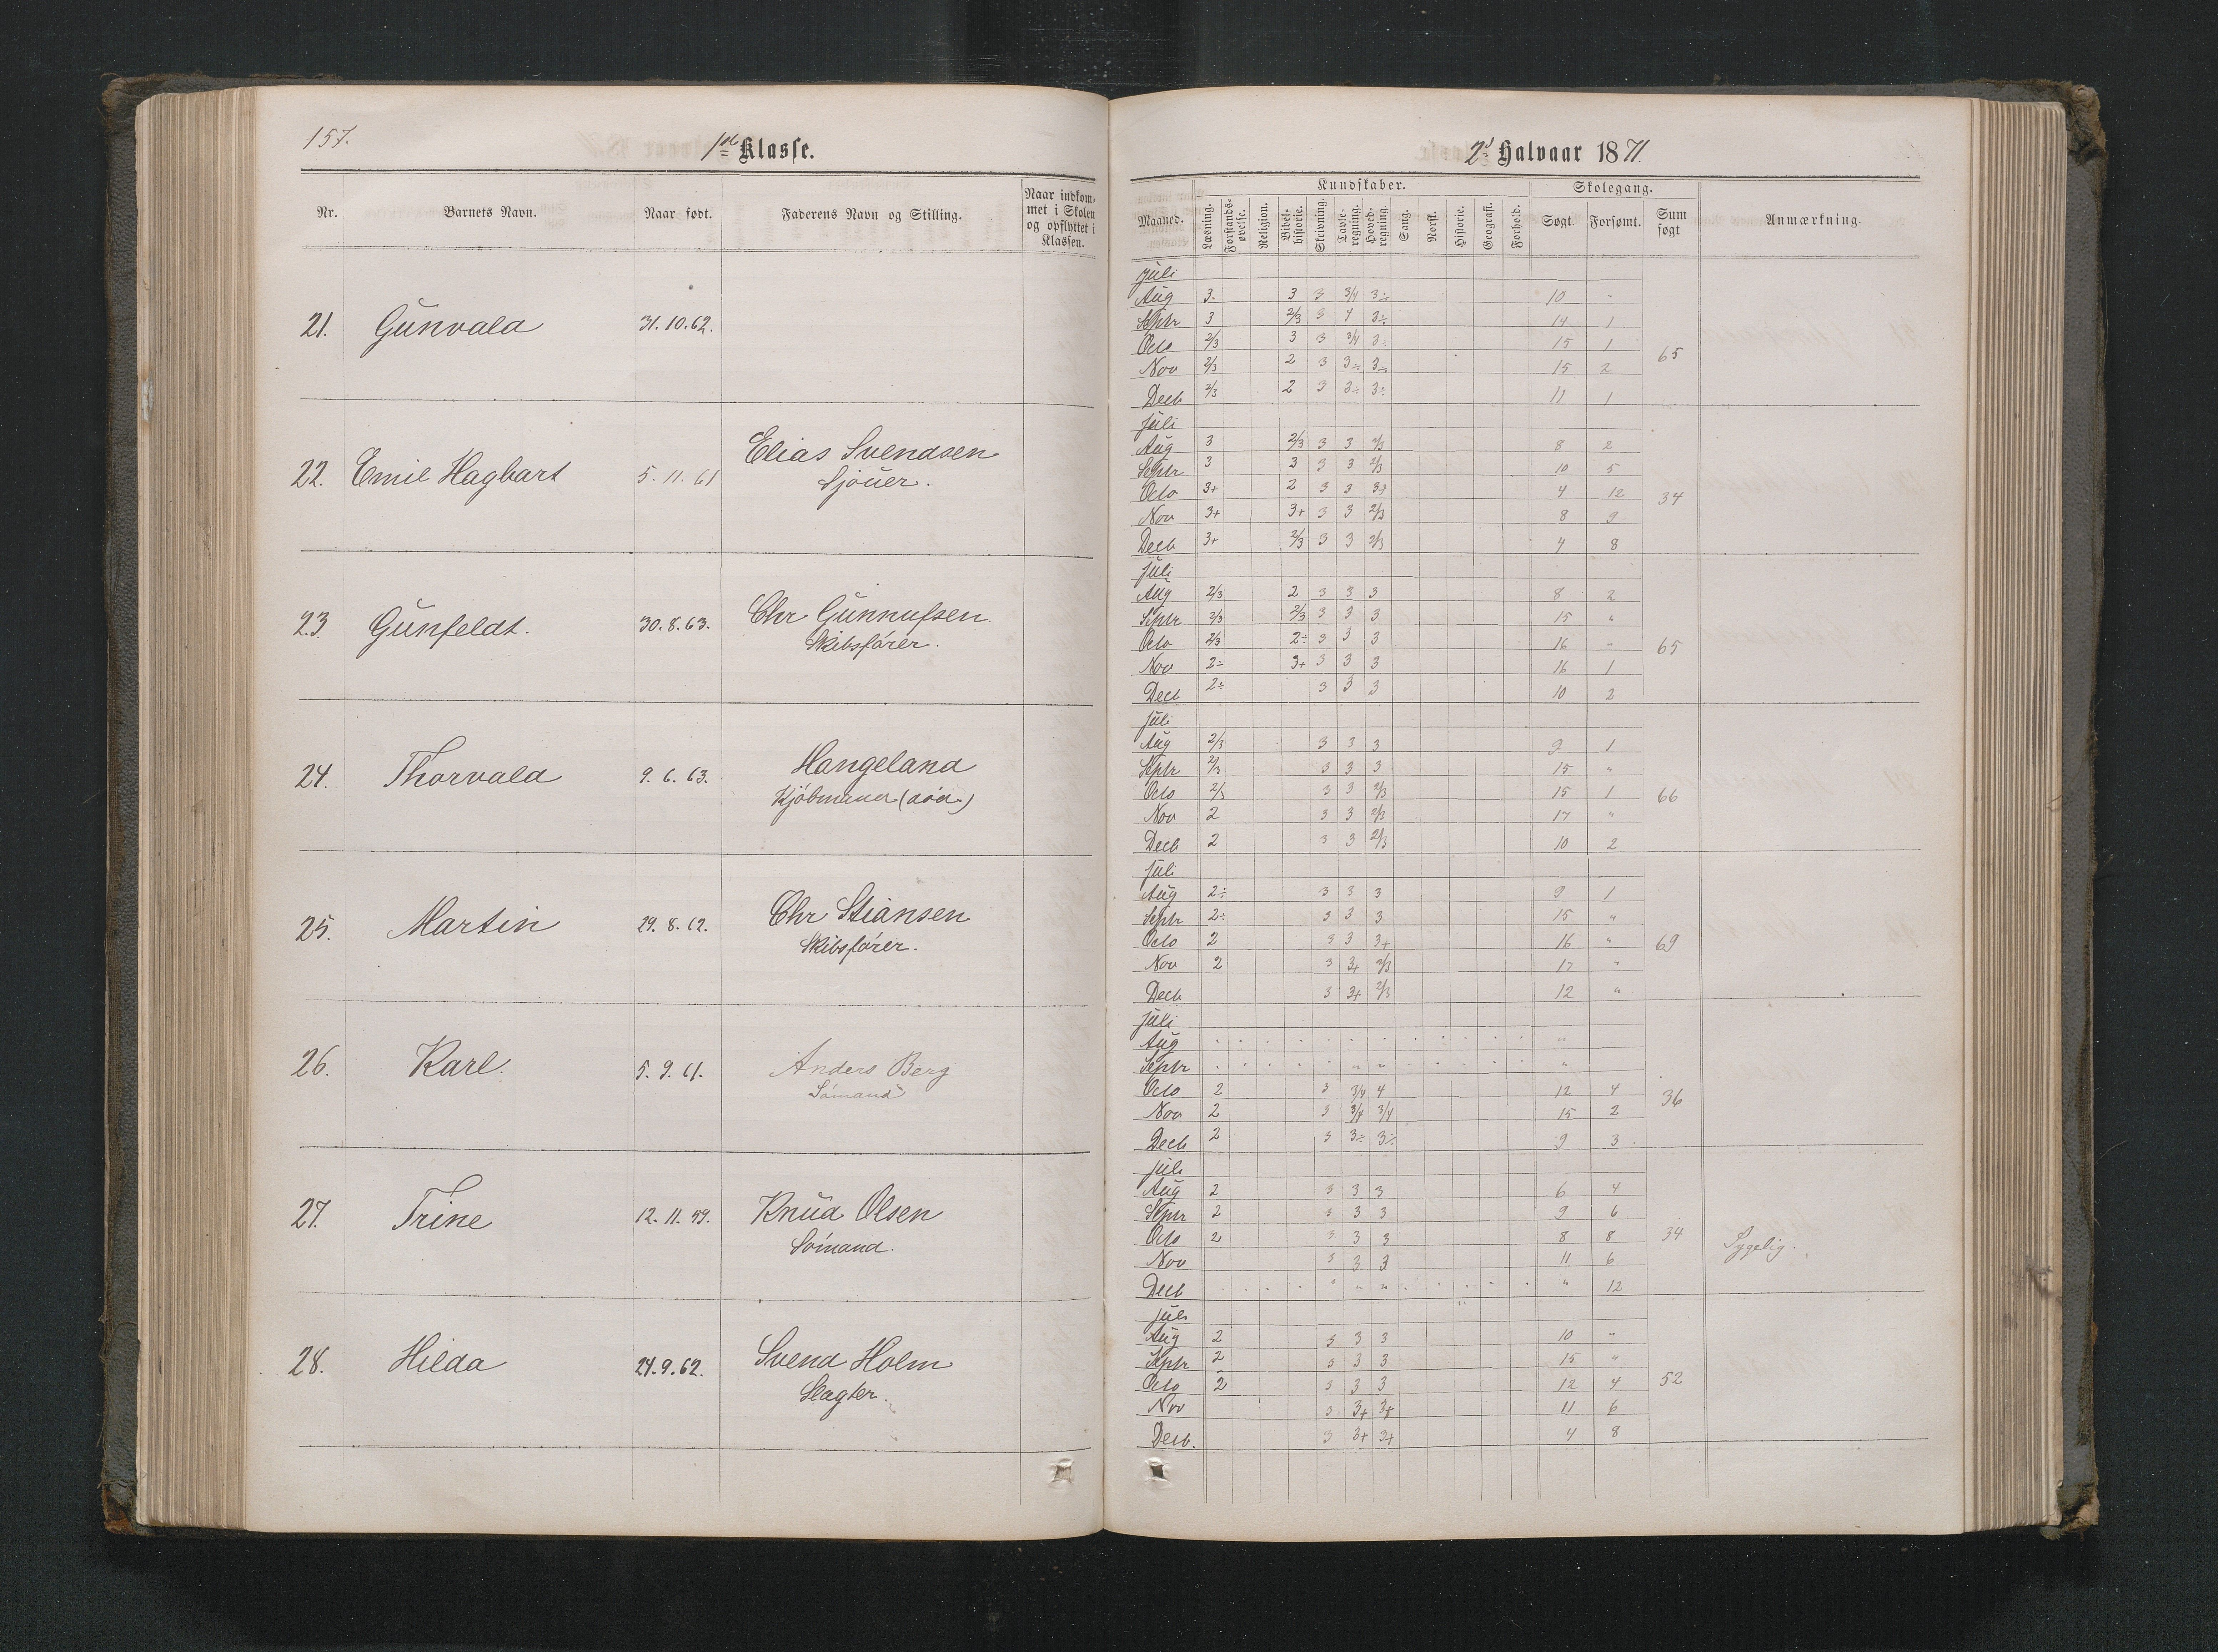 157.
1ste Klasse.
Nr. Barnets Navn. Naar født. Faderens Navn og Stilling. Naar indkommet i Skolen og opflyttet i Klassen.
21. Gunvald 31.10.62.
22. Emil Hagbart 5.11.61 Elias Svendsen
Sjouer.
23 Gunfeldt. 30.8.63. Chr Gunnufsen
Skibsfører.
24. Thorvald 9.6.63. Hangeland
Kjöbmand (död.)
25. Martin 29.8.62. Chr Stiansen
Skibsfører.
26. Karl. 5.9.61. Anders Berg
Sömand
27. Trine 12.11.59. Knud Olsen
Sömand.
28. Hilda 24.9.62. Svend Holm
Slagter.
2d Halvaar 1871.
Kundskaber. Skolegang.
Maaned. Læsning. Forstandsøvelse. Religion. Bibelhistorie. Skrivning. Tavleregning. Hovedregning. Sang. Norsk. Historie. Geografi. Forhold. Søgt. Forsømt. Sum søgt Anmærkning.
Juli
Aug 3. 3 3 3/4 3÷ 10 "
Septr 3 2/3 3 4 3÷ 14 1
Octo 2/3 3 3 3/4 3÷ 15 1
65
Nov 2/3 2 3 3÷ 3÷ 15 2
Decb 2/3 2 3 3÷ 3÷ 11 1
Juli
Aug 3 2/3 3 3 2/3 8 2
Septr 3 3 3 3 2/3 10 5
Octo 3+ 2 3 3 3+ 4 12
34
Nov 3+ 3+ 3 3 2/3 8 9
Decb 3+ 2/3 3 3 2/3 4 8
Juli
Aug 2/3 2 3 3 3 8 2
Septr 2/3 2/3 3 3 3 15 "
Octo 2/3 2÷ 3 3 3 16 "
65
Nov 2÷ 3+ 3 3 3 16 1
Decb 2÷ 3 3 3 10 2
Juli
Aug 2/3 3 3 3 9 1
Septr 2/3 3 3 3 15 "
Octo 2/3 3 3 2/3 15 1
66
Nov 2 3 3 2/3 17 "
Decb 2 3 3 2/3 10 2
Juli
Aug 2÷ 3 3 3 9 1
Septr 2÷ 3 3 3 15 "
Octo 2 3 3 3+ 16 "
69
Nov 2 3 3+ 2/3 17 "
Decb 3 3+ 2/3 12 "
Juli
Aug "
Septr " " "
Octo 2 3 3/4 4 12 4
36
Nov 2 3 3/4 3/4 15 2
Decb 2 3 3÷ 3÷ 9 3
Juli
Aug 2 3 3 3 6 4
Septr 2 3 3 3 9 6
Octo 2 3 3 3 8 8
34 Sygelig.
Nov 3 3 3 11 6
Decb " " " " 12
Juli
Aug 2 3 3 3 10 "
Septr 2 3 3 3 15 "
Octo 2 3 3 3 12 4
52
Nov 3 3+ 3+ 11 6
Decb. 3 3+ 3+ 4 8